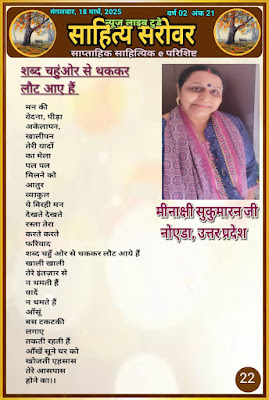 न्यूज लाइव टुडे
मंगलवार, 18 मार्च, 2025
वर्ष 02 अंक 21
साहित्य सरोवर
साप्ताहिक साहित्यिक e परिशिष्ट
शब्द चहुंओर से थककर
लौट आए हैं
मन की
वेदना, पीड़ा
अकेलापन,
खालीपन
तेरी यादों
का मेला
पल पल
मिलने को
आतुर
व्याकुल
ये विरही मन
देखते देखते
रस्ता तेरा
करते करते
फरियाद
शब्द चहुँ ओर से थककर लौट आये हैं
खाली खाली
तेरे इंतज़ार से
न थमती हैं
यादें
न थमते हैं
आँसूं
बस टकटकी
लगाए
तकती रहती हैं
आँखें सूने घर को
खोजती एहसास
तेरे आसपास
होने का।।
मीनाक्षी सुकुमारन जी
नोएडा, उत्तर प्रदेश
22